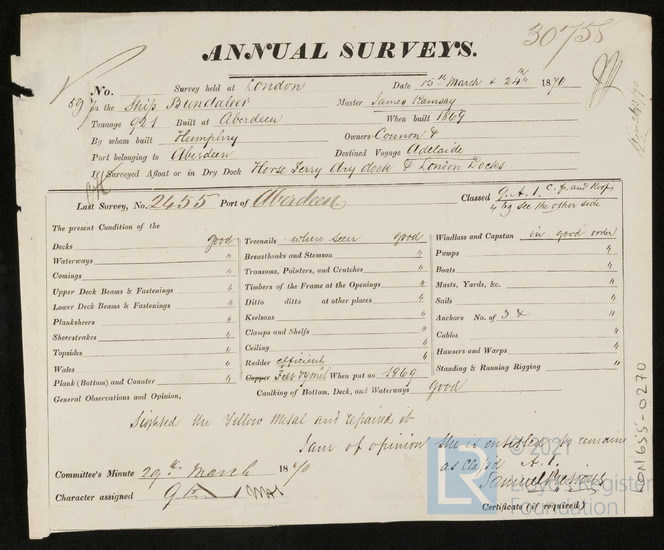 30758
ANNUAL SURVEYS.
No. Survey held at London Date 15th March & 24th 1870
on the Ship Bundaleer Master James Ramsay
Tonnage 921 Built at Aberdeen When built 1869
By whom built Humphry Owners Connon &
Port belonging to Aberdeen Destined Voyage Adelaide
If Surveyed Afloat or in Dry Dock Horse Ferry dry dock & London Docks
Last Survey, No. 2455 Port of Aberdeen Classed 9.A.1. C.f. and Roof
4 69 see the other side
The present Condition of the
Decks good
Waterways "
Comings "
Upper Deck Beams & Fastenings "
Lower Deck Beams & Fastenings "
Planksheers "
Sheerstrakes "
Topsides "
Wales "
Plank (Bottom) and Counter "
Treenails where seen good
Breasthooks and Stemson "
Transoms, Pointers, and Crutches "
Timbers of the Frame at the Openings "
Ditto ditto at other places "
Keelsons "
Clamps and Shelfs "
Ceiling "
Rudder efficient "
Copper When put on 1869
Caulking of Bottom, Deck, and Waterways good
Windlass and Capstan in good order
Pumps "
Boats "
Masts, Yards, &c. "
Sails "
Anchors No. of 3 & "
Cables "
Hausers and Warps "
Standing & Running Rigging "
General Observations and Opinion,
Sighted the Yellow Metal and repaired it
I am of opinion She is entitled to remain
as Class'd A.1.
Committee's Minute 29th March 1870
Character assigned 9
Certificate (if required)
LON655-0270
© 2021
LR
Lloyd's Register
Foundation